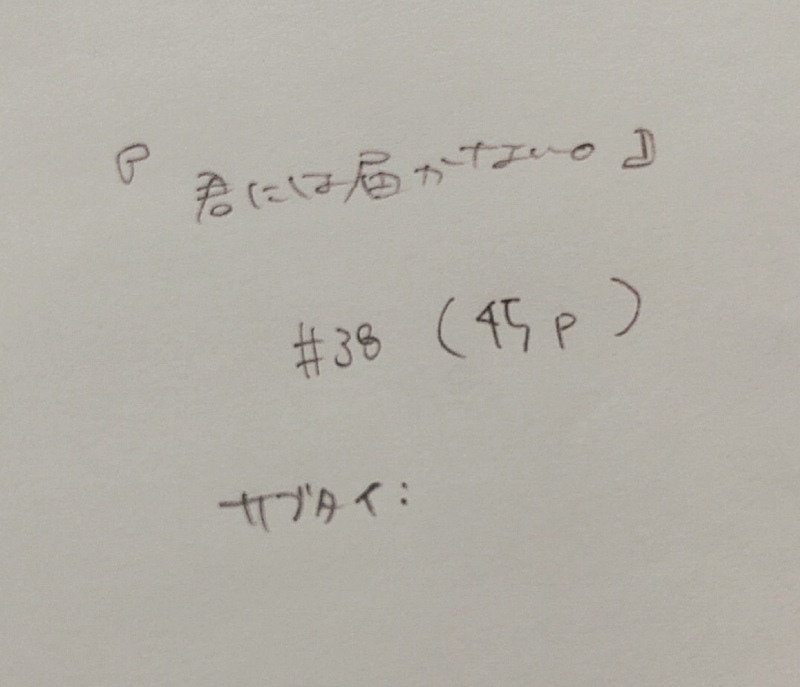 『君には届かない。』
#38 (45p)
サブタイ: